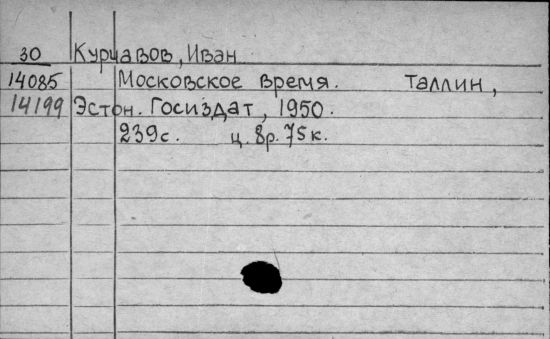 30 Курчавов, Иван
14085 Московское время. Таллин,
14199 Эстон. Госиздат, 1950.
239с. ц. 8р. 75к.